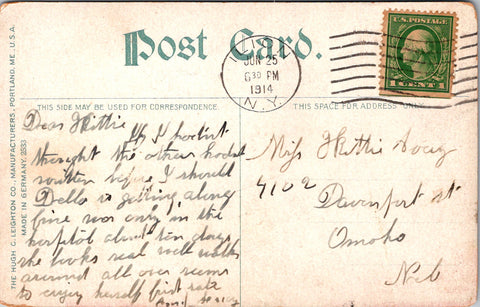 Post Card.
ILION
JUN 25
6 30 PM
1914
N.Y.
U.S. POSTAGE
1 CENT 1
THIS SIDE MAY BE USED FOR CORRESPONDENCE.
THIS SPACE FOR ADDRESS ONLY.
THE HUGH C. LEIGHTON CO., MANUFACTURERS, PORTLAND, ME., U.S.A.
MADE IN GERMANY.
Dear Hittie
If I hadint
thought the others hadst
written before I should
Della is getting along
fine was only in the
hospital about ten days
she looks real well walks
around all over seems
to enjoy herself first rate
Miss Hittie
4102
Davenport st
Omoho
Neb